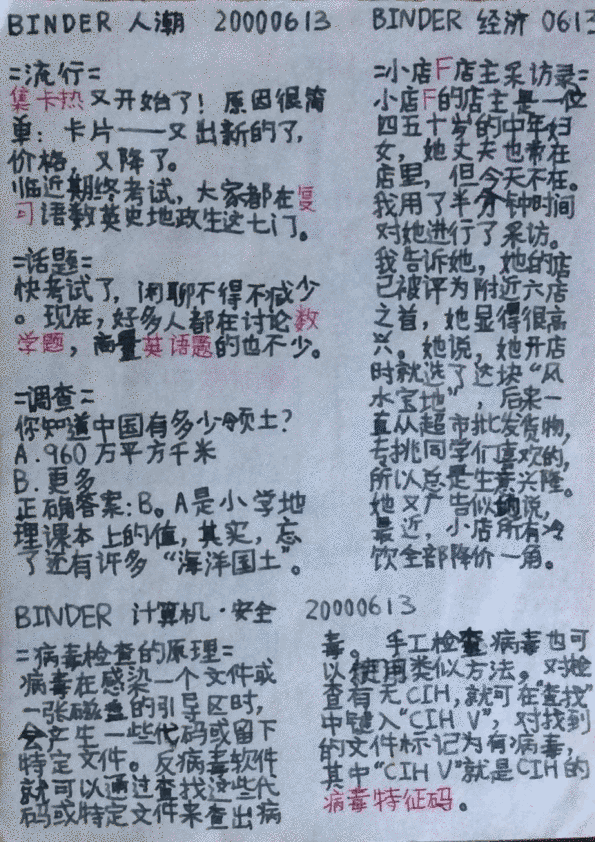 BINDER 人潮 20000613
=流行=
集卡热又开始了！原因很简
单：卡片——又出新的了，
价格，又降了。
临近期终考试，大家都在复
习语数英史地政生这七门。
=话题=
快考试了，闲聊不得不减少
。现在，好多人都在讨论数
学题，商量英语题的也不少。
=调查=
你知道中国有多少领土？
A.960万平方千米
B.更多
正确答案：B。A是小学地
理课本上的值，其实，忘
了还有许多“海洋国土”。
BINDER 经济 0613
=小店F店主采访录=
小店F的店主是一位
四五十岁的中年妇
女，她丈夫也常在
店里，但今天不在。
我用了半分钟时间
对她进行了采访。
我告诉她，她的店
已被评为附近六店
之首，她显得很高
兴。她说，她开店
时就选了这块“风
水宝地”，后来一
直从超市批发货物，
专挑同学们喜欢的，
所以总是生意兴隆。
她又广告似的说，
最近，小店所有冷
饮全部降价一角。
BINDER 计算机·安全 20000613
=病毒检查的原理=
病毒在感染一个文件或
一张磁盘的引导区时，
会产生一些代码或留下
特定文件。反病毒软件
就可以通过查找这些代
码或特定文件来查出病
毒。手工检查病毒也可
以使用类似方法。对检
查有无CIH，就可在“查找”
中键入“CIH V”，对找到
的文件标记为有病毒，
其中“CIH V”就是CIH的
病毒特征码。